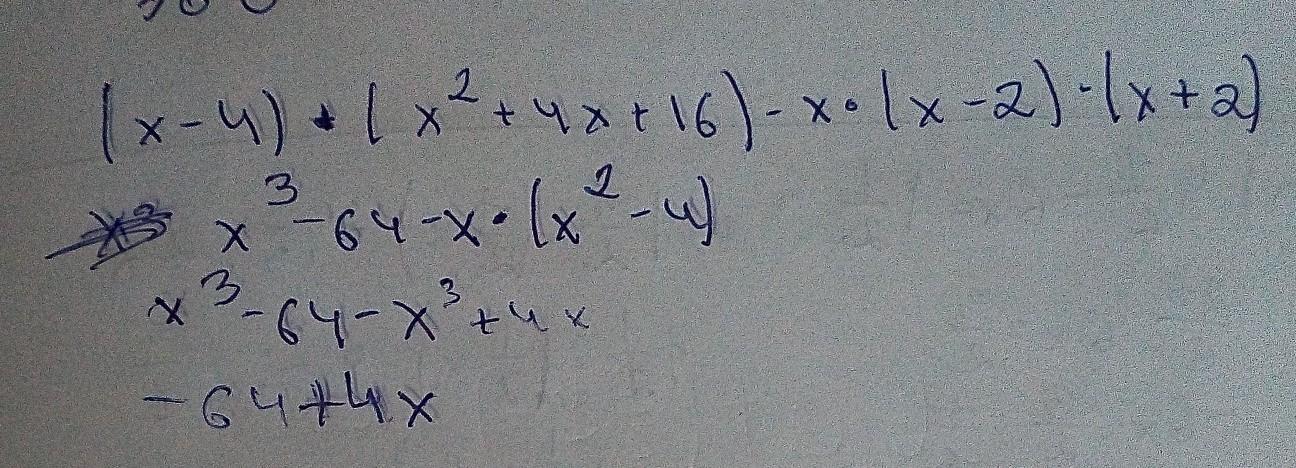 (x-4)·(x²+4x+16)-x·(x-2)·(x+2)
x³-64-x·(x²-4)
x³-64-x³+4x
-64+4x